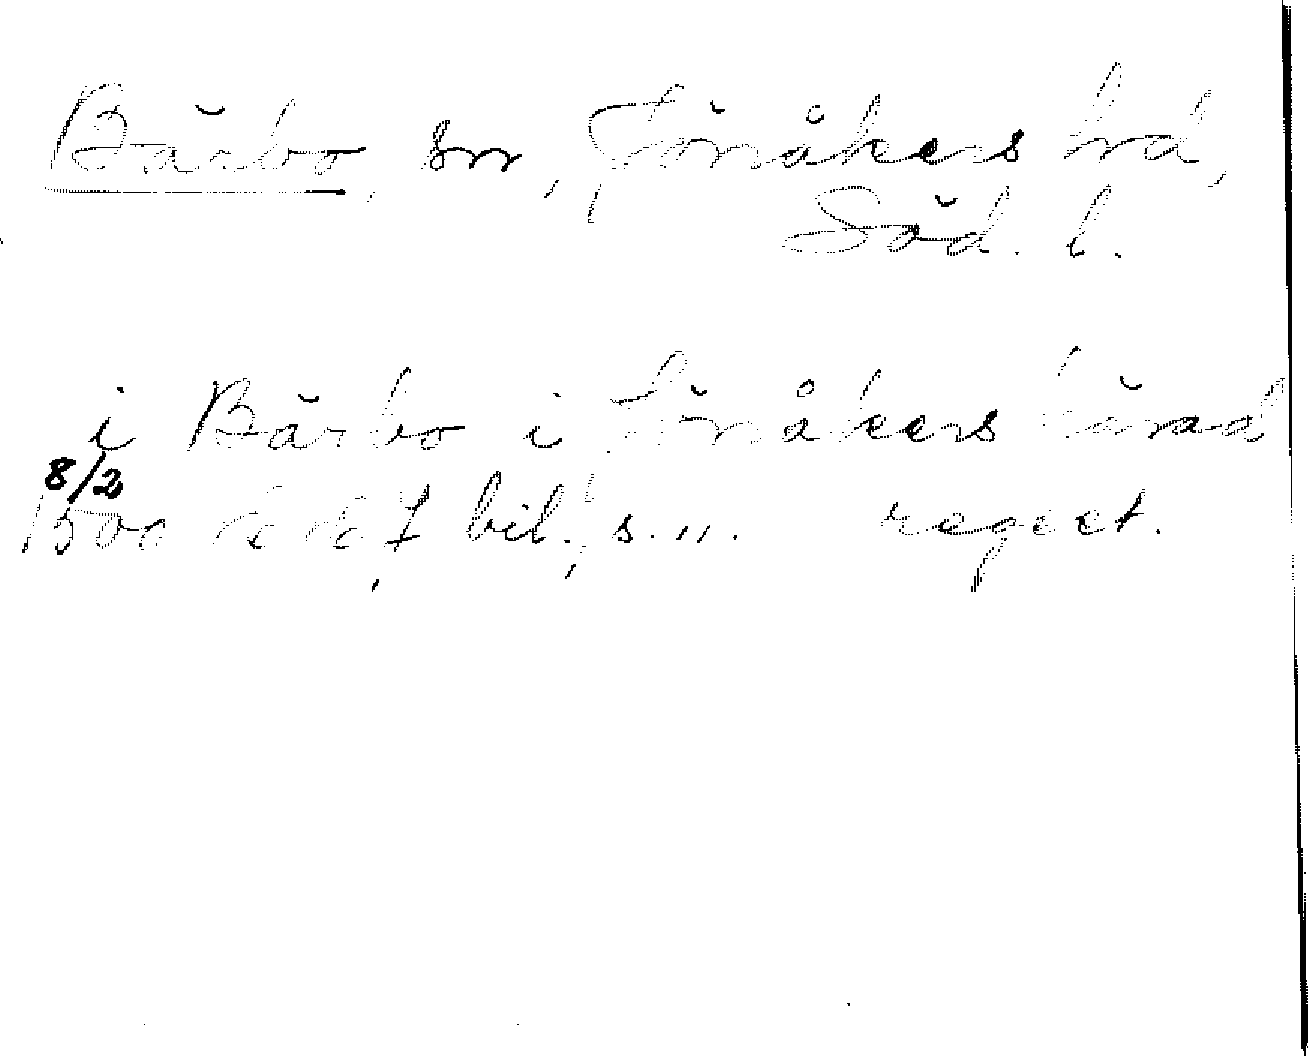 Bärbo, sn, Jönåkers hd,
Söd. l.
i Bärbo i Jönåkers härad
8/2
1500 bil. s. regest.